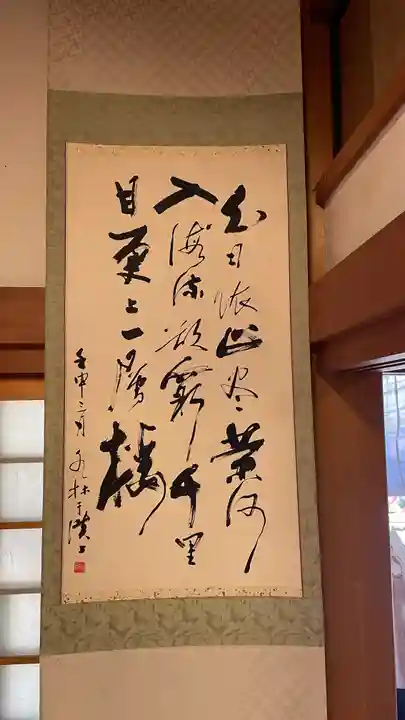 白日依山尽黄河
入海流欲窮千里
目更上一層楼
壬申二月